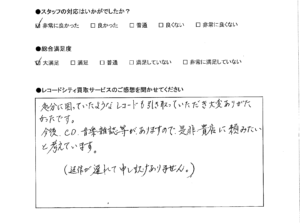 ●スタッフの対応はいかがでしたか？
☑非常に良かった □良かった □普通 □良くない □非常に良くない
●総合満足度
☑大満足 □満足 □普通 □満足していない □非常に満足していない
●レコードシティ買取サービスのご感想を聞かせてください
処分に困っていたようなレコードも引き取っていただき大変ありがた
かったです。
今後、CD、音楽雑誌等がありますので、是非貴店に頼みたい
と考えています。
(返信が遅れて申し訳ありません。)